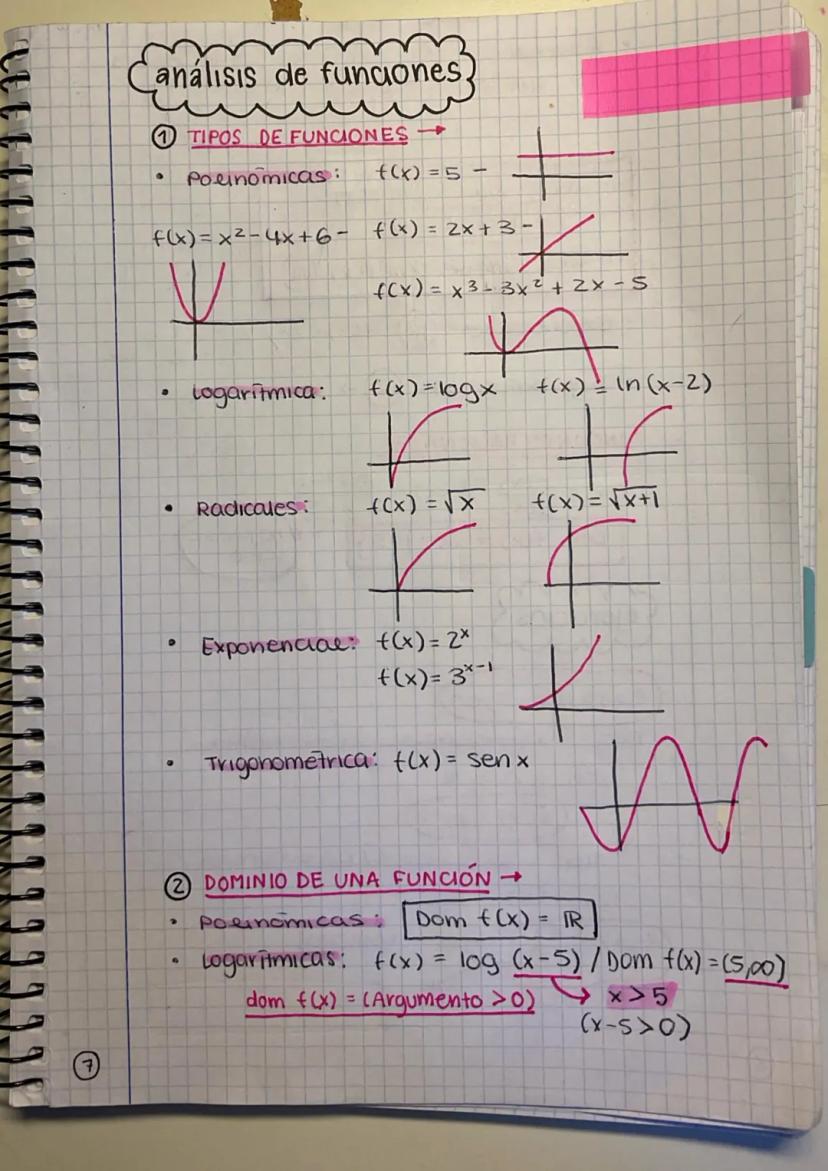 análisis de funciones
① TIPOS DE FUNCIONES →
• Polinómicas: f(x) = 5 -
f(x) = x² - 4x + 6 - f(x) = 2x + 3 -
f(x) = x³ - 3x² + 2x - 5
• Logarítmica: f(x) = log x f(x) = ln (x-2)
• Radicales: f(x) = √x f(x) = √x+1
• Exponencial: f(x) = 2ˣ
f(x) = 3ˣ⁻¹
• Trigonométrica: f(x) = sen x
② DOMINIO DE UNA FUNCIÓN →
• Polinómicas: Dom f(x) = ℝ
• Logarítmicas: f(x) = log (x-5) / Dom f(x) = (5,∞)
dom f(x) = (Argumento > 0) → x > 5
(x-5 > 0)
⑦